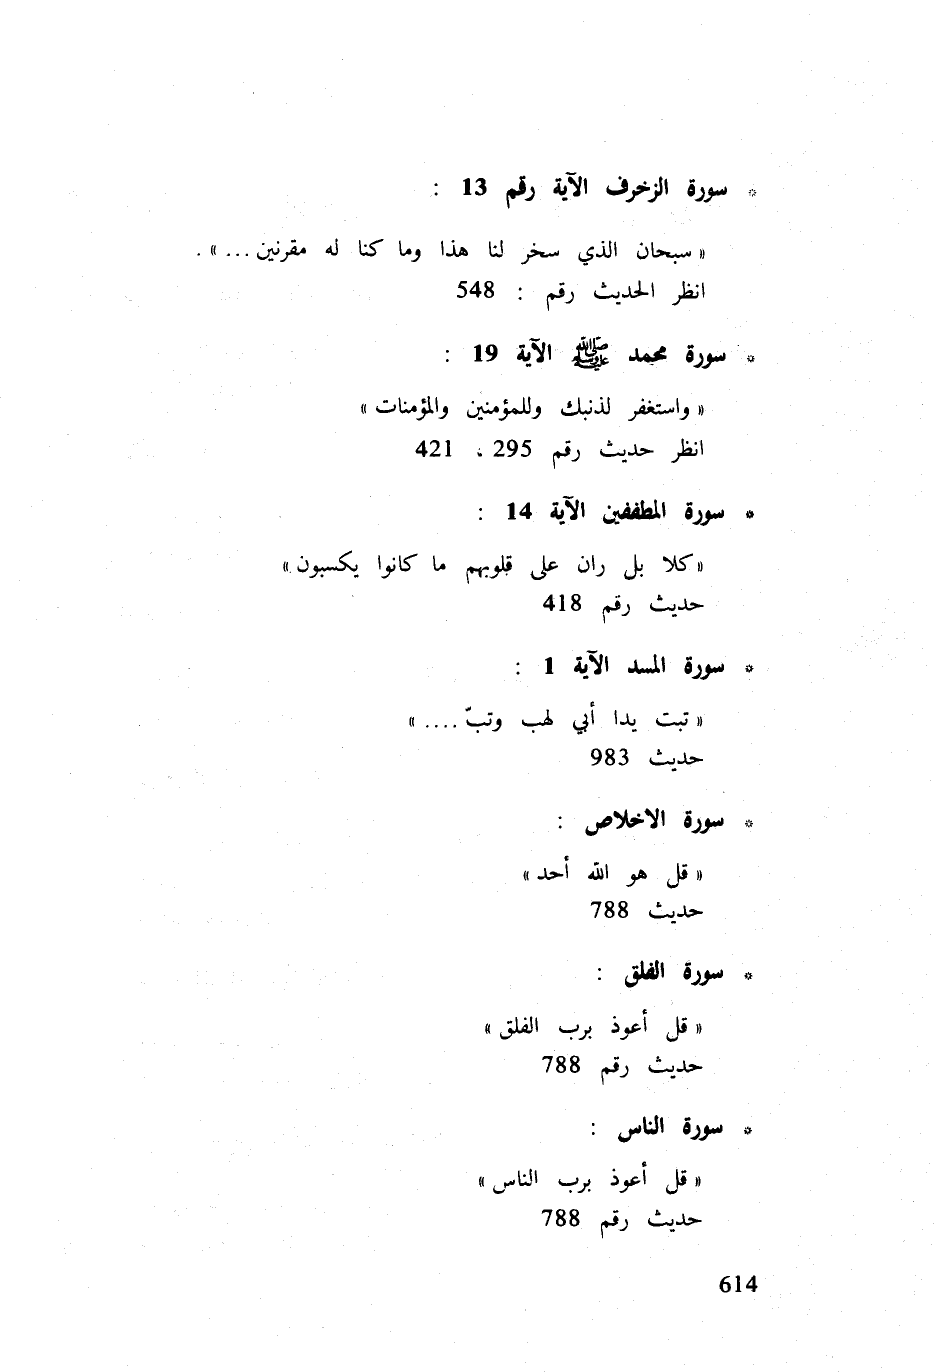 * سورة الزخرف الآية رقم 13 :
« سبحان الذي سخر لنا هذا وما كنا له مقرنين ... » .
انظر الحديث رقم : 548
* سورة محمد ﷺ الآية 19 :
« واستغفر لذنبك وللمؤمنين والمؤمنات »
انظر حديث رقم 295 ، 421
* سورة المطففين الآية 14 :
«كلا بل ران على قلوبهم ما كانوا يكسبون»
حديث رقم 418
* سورة المسد الآية 1 :
« تبت يدا أبي لهب وتبّ .... »
حديث 983
* سورة الاخلاص :
« قل هو الله أحد »
حديث 788
* سورة الفلق :
« قل أعوذ برب الفلق »
حديث رقم 788
* سورة الناس :
« قل أعوذ برب الناس »
حديث رقم 788
614